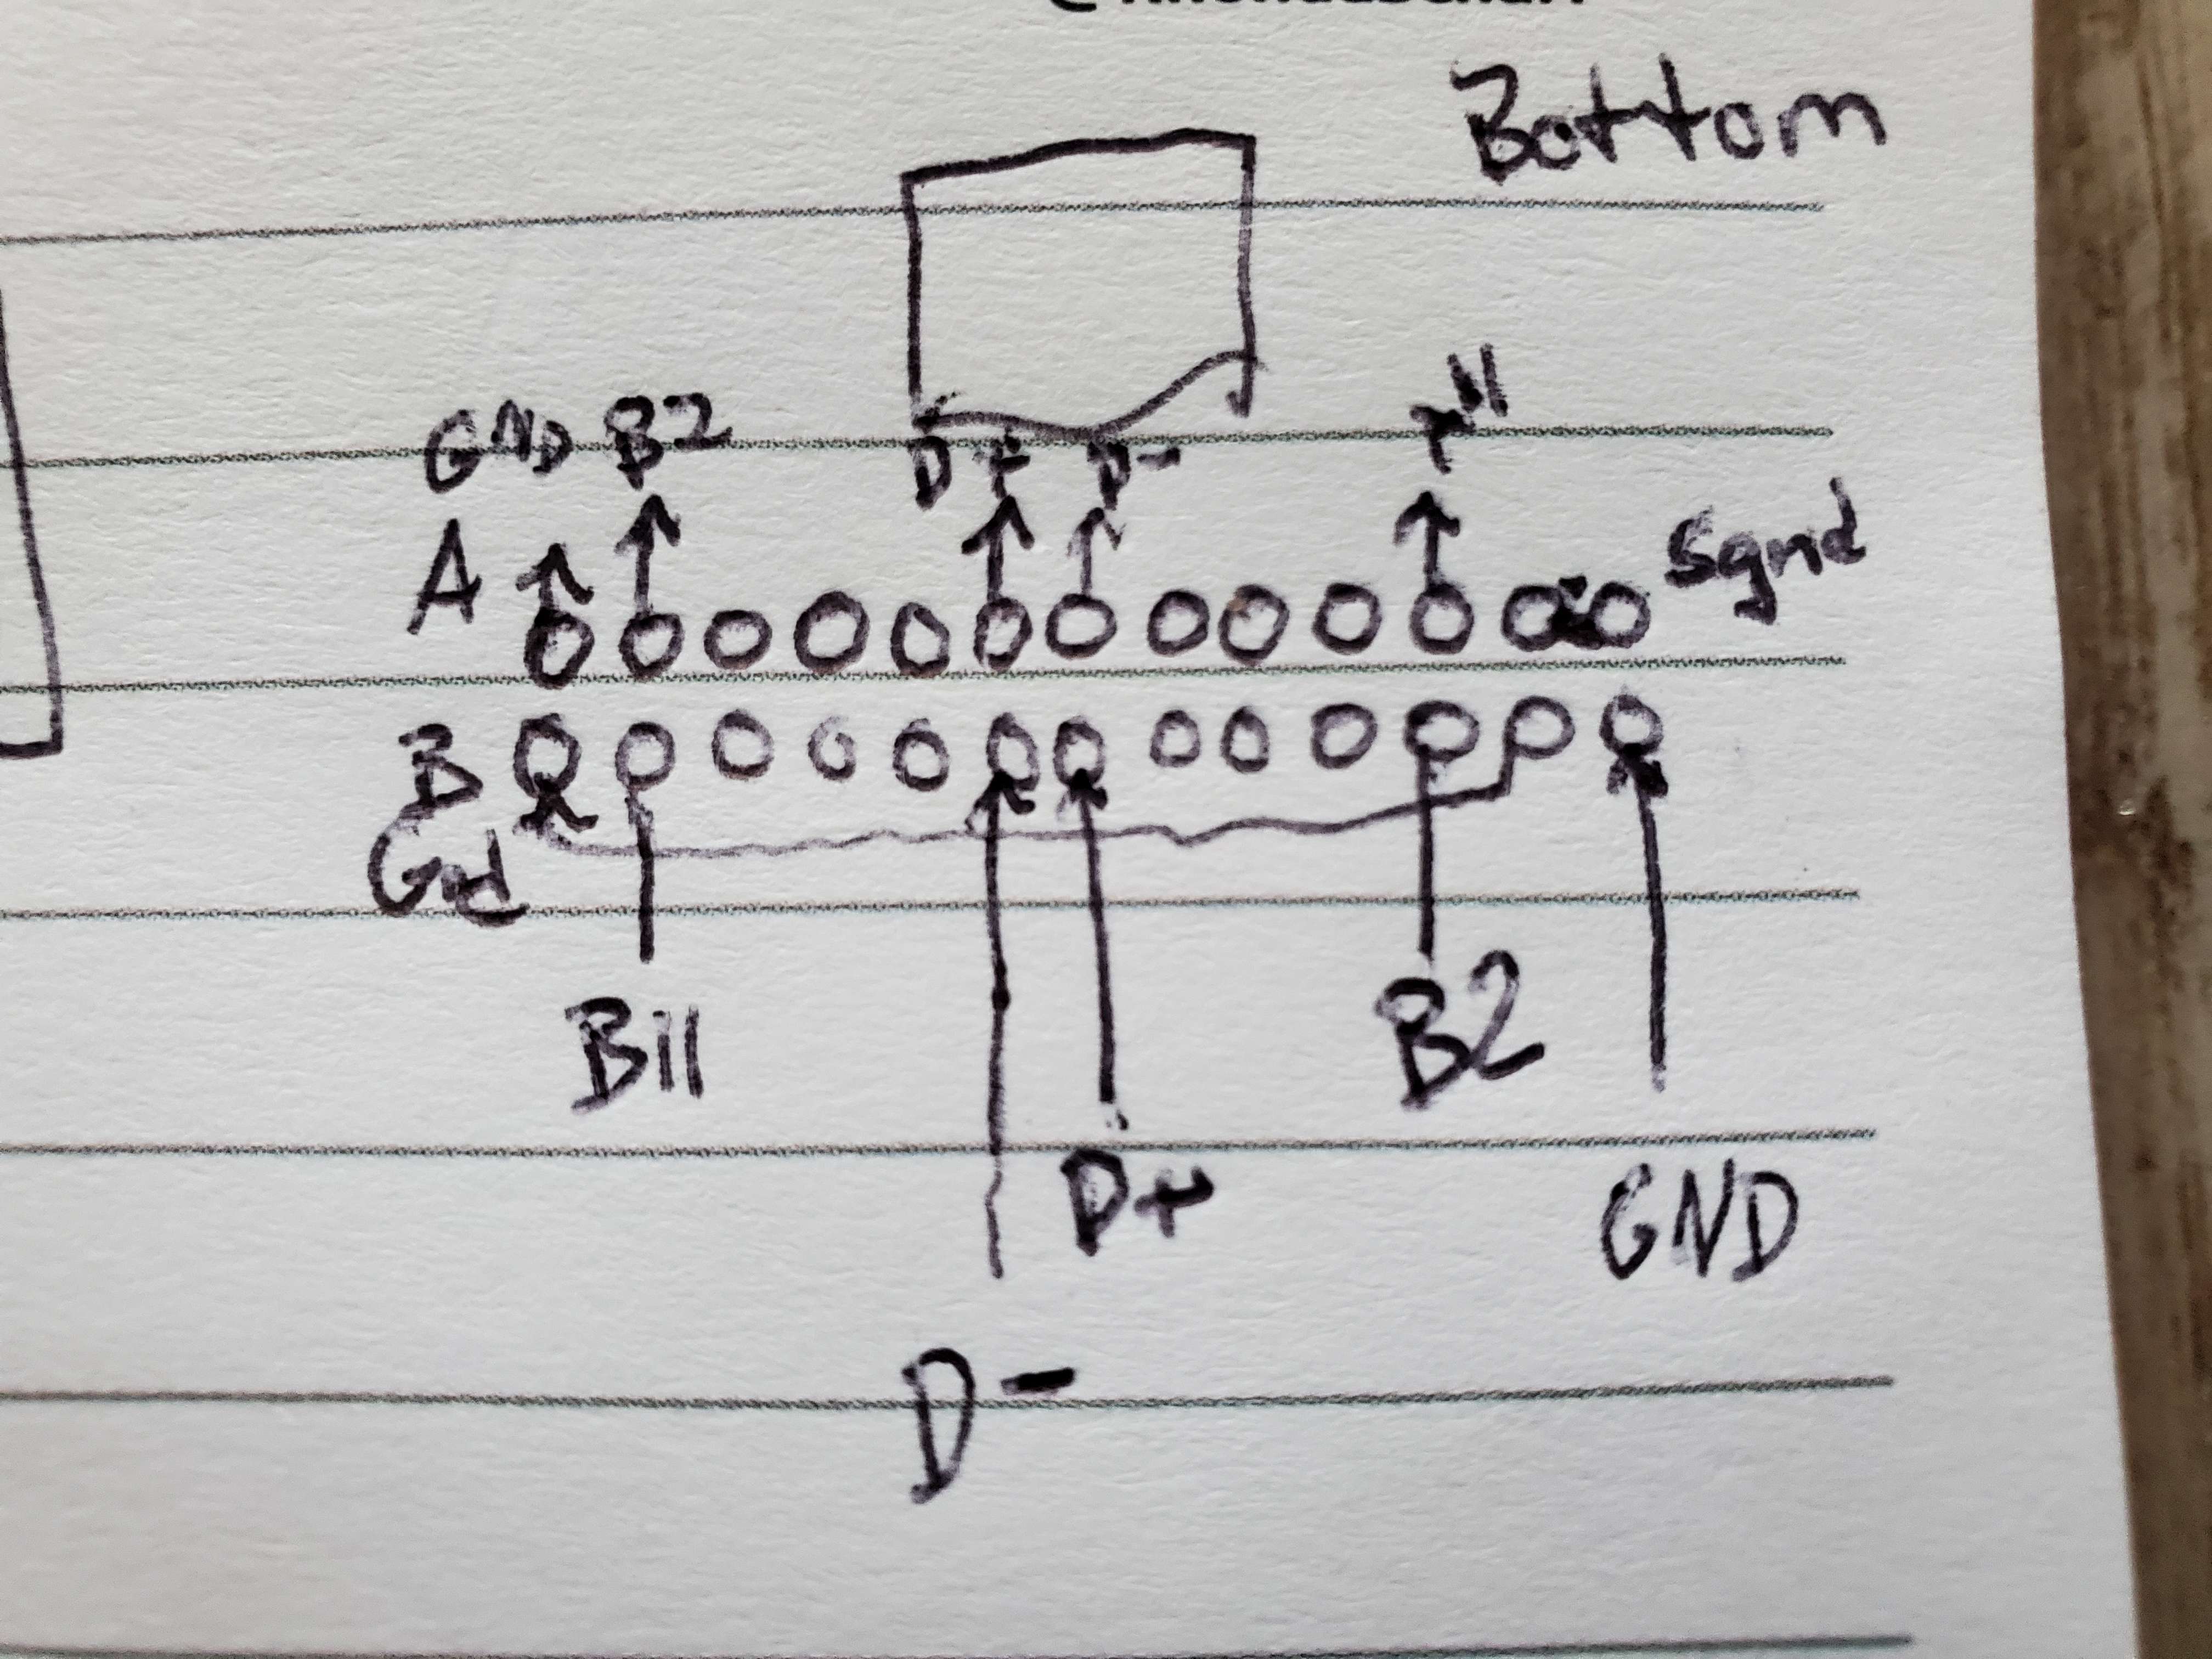 Bottom
GND B2 D+ D- 11
A Sgnd
B
Gnd
B11 B2
D+ GND
D-